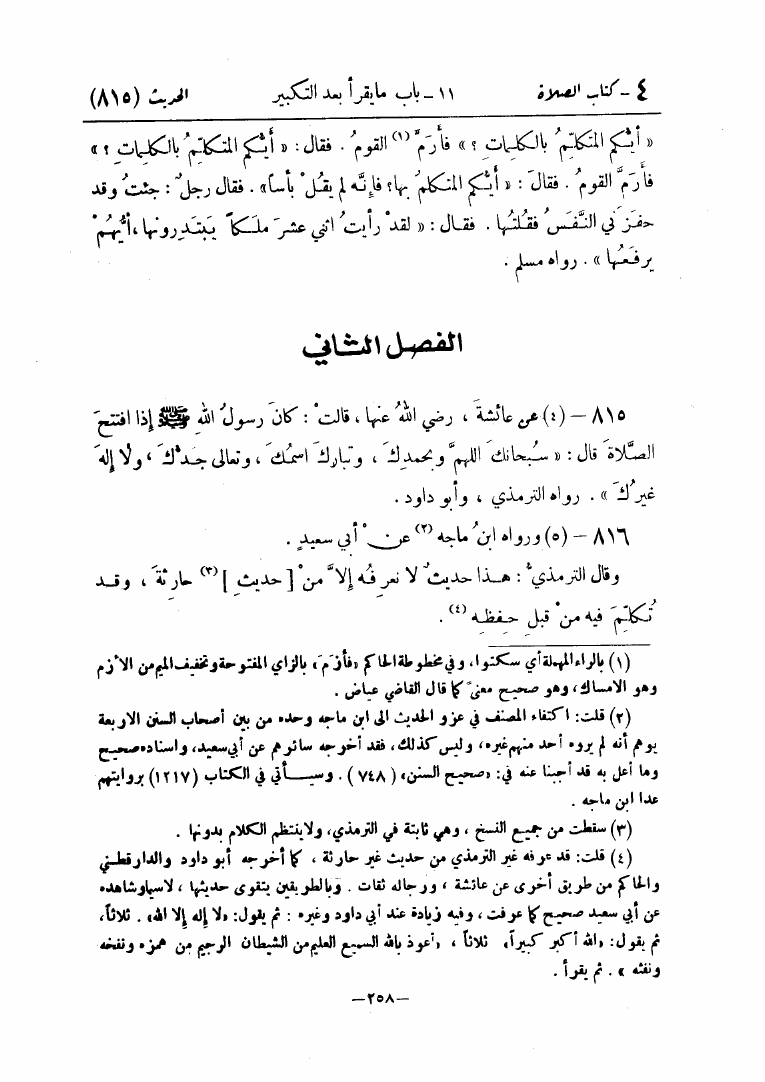 ٤ - كتاب الصلاة ١١ - باب ما يقرأ بعد التكبير الحديث (٨١٥)
« أيُّكم المتكلِّمُ بالكلماتِ ؟ » فأَرَمَّ (١) القومُ . فقال : « أيُّكم المتكلِّمُ بالكلماتِ ؟ »
فأرَمَّ القومُ . فقالَ : « أيُّكم المتكلمُ بها؟ فإنَّه لم يقُلْ بأساً» . فقال رجلٌ : جئتُ وقد
حفَزَني النَّفَسُ فقُلتُها . فقال : « لقدْ رأيتُ اثني عشرَ ملَكاً يَبتَدِرونها ،أيُّهمْ
يرفَعُها » . رواه مسلم .
الفصل الثاني
٨١٥ – (٤) عن عائشةَ ، رضي اللهُ عنها ، قالتْ : كانَ رسولُ اللهِ ﷺ إذا افتتحَ
الصَّلاةَ قال : « سُبحانكَ اللهمَّ وبحمدِكَ ، وتباركَ اسمُكَ ، وتعالى جدُّكَ ، ولا إلهَ
غيرُكَ » . رواه الترمذي ، وأبو داود .
٨١٦ – (٥) ورواه ابنُ ماجه (٢) عنْ أبي سعيدٍ .
وقال الترمذيُّ : هذا حديثٌ لا نعرِفُه إلاَّ منْ [ حديثِ ] (٣) حارثةَ ، وقد
تُكلِّمَ فيه منْ قبلِ حفظِه (٤) .
(١) بالراء المهملة أي سكتوا، وفي مخطوطة الحاكم «فأزَمَ» بالزاي المفتوحة وتخفيف الميم من الأزم
وهو الامساك، وهو صحيح معنىً كما قال القاضي عياض .
(٢) قلت: اكتفاء المصنف في عزو الحديث الى ابن ماجه وحده من بين أصحاب السنن الاربعة
يوهم أنه لم يروه أحد منهم غيره، وليس كذلك، فقد أخرجه سائرهم عن أبي سعيد، واسناده صحيح
وما أعل به قد أجبنا عنه في: «صحيح السنن» ( ٧٤٨ ) . وسيأتي في الكتاب (١٢١٧) بروايتهم
عدا ابن ماجه .
(٣) سقطت من جميع النسخ ، وهي ثابتة في الترمذي، ولا ينتظم الكلام بدونها .
(٤) قلت: قد عرفه غير الترمذي من حديث غير حارثة ، كما أخرجه أبو داود والدارقطني
والحاكم من طريق أخرى عن عائشة ، ورجاله ثقات . وبالطريقين يتقوى حديثها ، لاسيما وشاهده
عن أبي سعيد صحيح كما عرفت ، وفيه زيادة عند أبي داود وغيره : ثم يقول: «لا إله إلا الله» . ثلاثاً،
ثم يقول: «الله أكبر كبيراً» ثلاثاً ، «أعوذ بالله السميع العليم من الشيطان الرجيم من همزه ونفخه
ونفثه » . ثم يقرأ .
—٢٥٨—